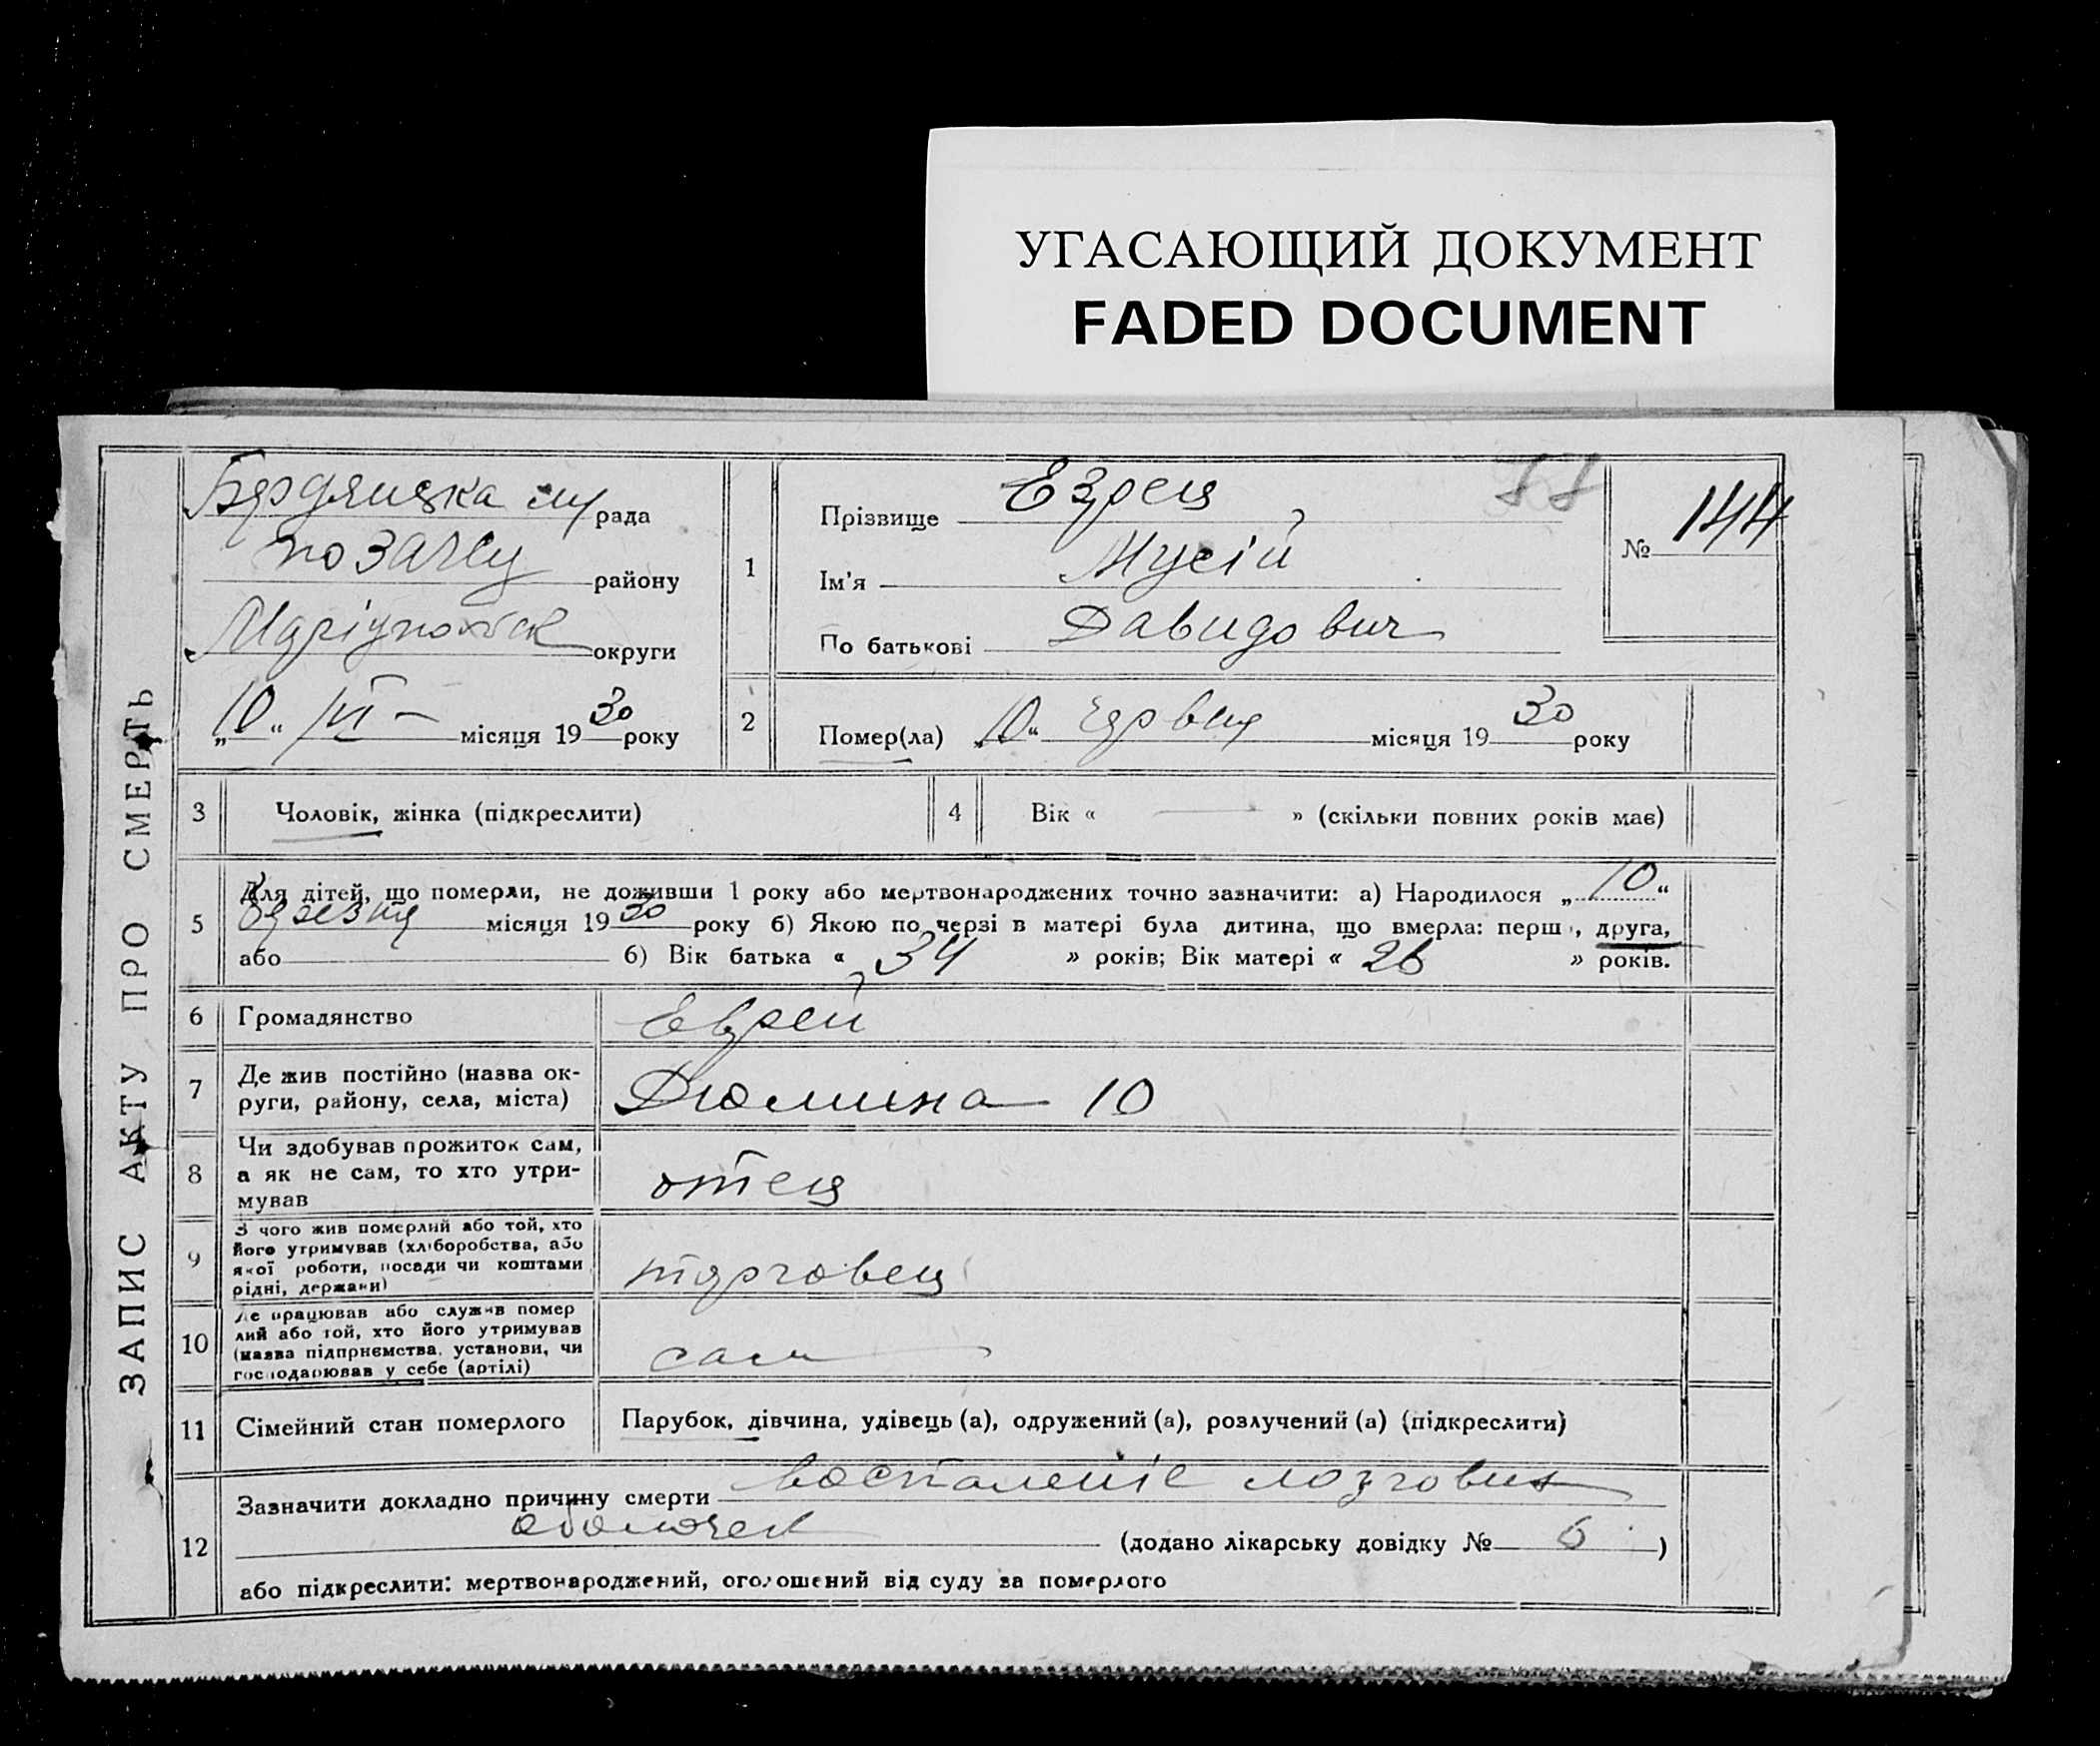 УГАСАЮЩИЙ ДОКУМЕНТ
FADED DOCUMENT
ЗАПИС АКТУ ПРО СМЕРТЬ
Бердянцка м/рада
по ЗАГСу району
Маріупольск округи
„10“ VI – місяця 1930 року
1
Прізвище Езрец
Ім'я Мусій
По батькові Давидович
№ 144
2
Помер(ла) „10“ червця місяця 1930 року
3 Чоловік, жінка (підкреслити)
4 Вік « — » (скільки повних років має)
5 Для дітей, що померли, не доживши 1 року або мертвонароджених точно зазначити: а) Народилося „10“
березня місяця 1930 року б) Якою по черзі в матері була дитина, що вмерла: перша, друга,
або б) Вік батька « 34 » років; Вік матері « 26 » років.
6 Громадянство Еврей
7 Де жив постійно (назва ок-
руги, району, села, міста) Дюмина 10
8 Чи здобував прожиток сам,
а як не сам, то хто утри-
мував отец
9 З чого жив померлий або той, хто
його утримував (хліборобства, або
якої роботи, посади чи коштами
рідні, держави) торговец
10 Де працював або служив помер
лий або той, хто його утримував
(назва підпрнємства, установи, чи
господарював у себе (артілі) сам
11 Сімейний стан померлого Парубок, дівчина, удівець (а), одружений (а), розлучений (а) (підкреслити)
12 Зазначити докладно причину смерти воспаленіе мозговых
оболочек (додано лікарську довідку № 6)
або підкреслити: мертвонароджений, оголошений від суду за померлого